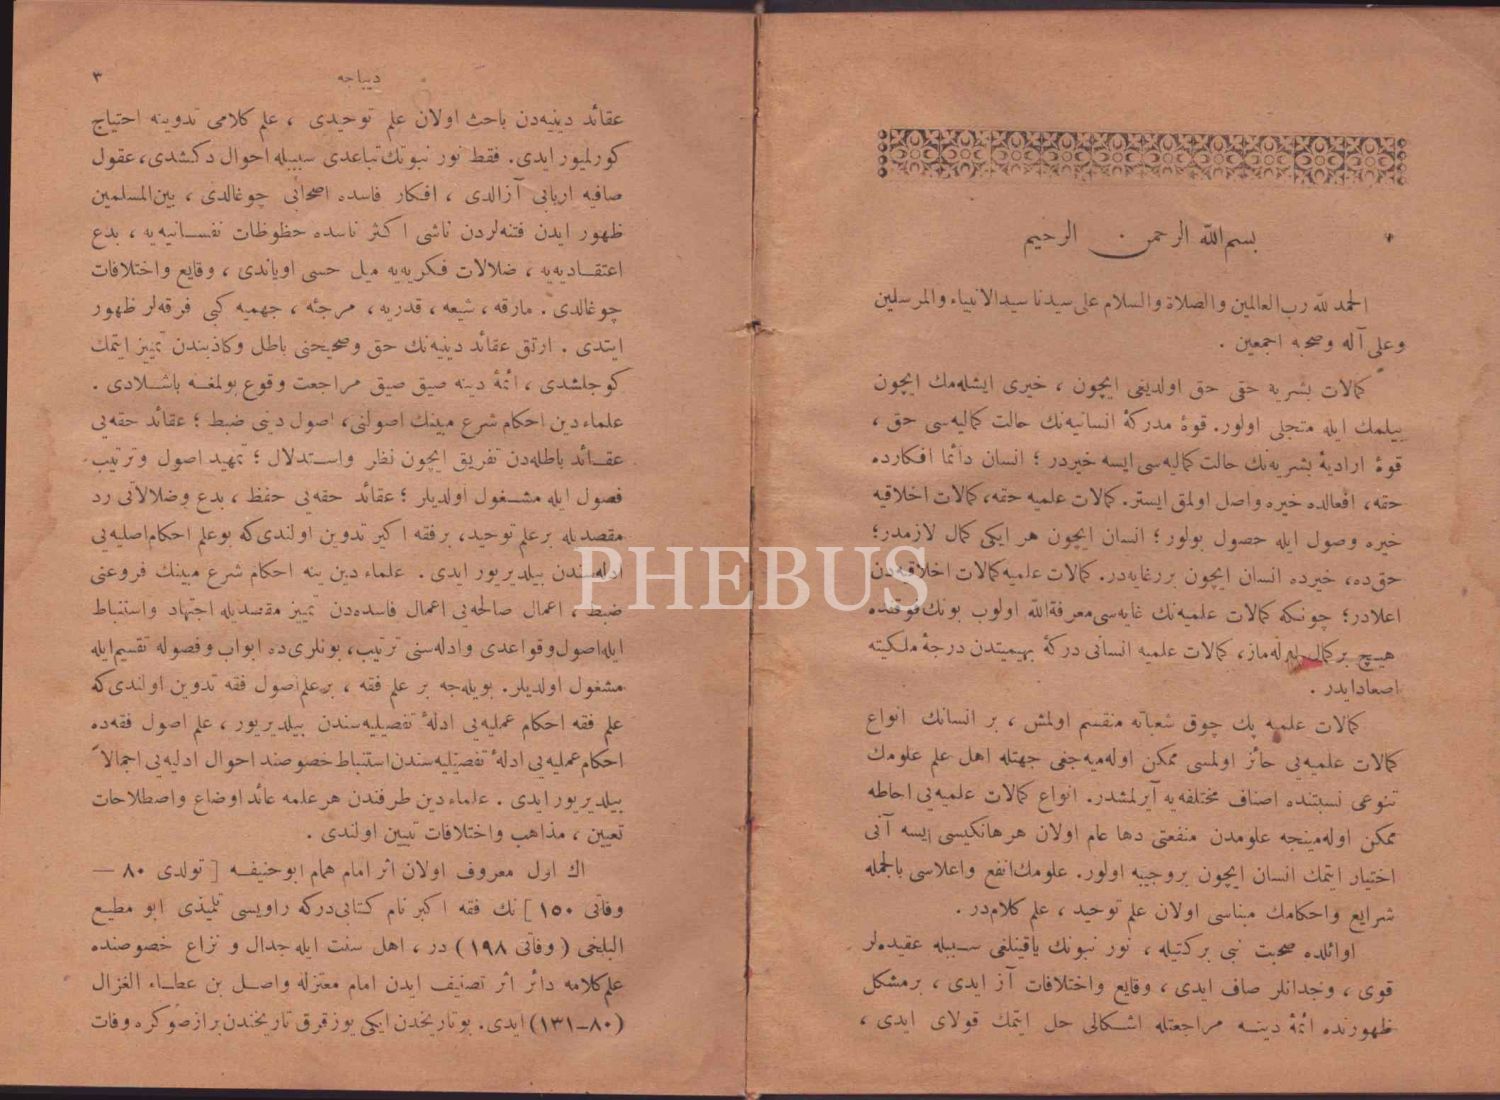 بسم الله الرحمن الرحيم
الحمد لله رب العالمين والصلاة والسلام على سيدنا سيد الانبياء والمرسلين
وعلى آله وصحبه اجمعين .
كمالات بشريه حقى حق اولديغى ايچون ، خيرى ايشله‌مك ايچون
بيلمك ايله متجلى اولور. قوۀ مدركۀ انسانيه‌نك حالت كماليه‌سى حق ،
قوۀ اراديۀ بشريه‌نك حالت كماليه‌سى ايسه خيردر ؛ انسان دائما افكارده
حقه، افعالده خيره واصل اولمق ايستر. كمالات علميه حقه، كمالات اخلاقيه
خيره وصول ايله حصول بولور ؛ انسان ايچون هر ايكى كمال لازمدر؛
حق‌ده، خيرده انسان ايچون بررغايه‌در. كمالات علميه كمالات اخلاقيه‌دن
اعلادر؛ چونكه كمالات علميه‌نك غايه‌سى معرفة‌الله اولوب بونك فوقنده
هيچ بركمال اوله‌ماز، كمالات علميه انسانى دركۀ بهيميتدن درجۀ ملكيته
اصعادايدر .
كمالات علميه پك چوق شعباته منقسم اولمش ، بر انسانك انواع
كمالات علميه‌يى حائز اولمسى ممكن اوله‌ميه‌جغى جهتله اهل علم علومك
تنوعى نسبتنده اصناف مختلفه‌يه آيرلمشدر. انواع كمالات علميه‌يى احاطه
ممكن اوله‌مينجه علومدن منفعتى دها عام اولان هر هانكيسى ايسه آنى
اختيار ايتمك انسان ايچون بر وجيبه اولور. علومك انفع واعلاسى بالجمله
شرايع واحكامك مبناسى اولان علم توحيد ، علم كلام‌در .
اوائلده صحبت نبى بركتيله ، نور نبوتك ياقينلغى سببيله عقيده‌لر
قوى ، وجدانلر صاف ايدى ، وقايع واختلافات آز ايدى ، برمشكل
ظهورنده ائمۀ دينه مراجعتله اشكالى حل ايتمك قولاى ايدى ،
ديباجه
٣
عقائد دينيه‌دن باحث اولان علم توحيدى ، علم كلامى تدوينه احتياج
كورلميور ايدى. فقط نور نبوتك تباعدى سببيله احوال دكشدى، عقول
صافيه اربابى آزالدى ، افكار فاسده اصحابى چوغالدى ، بين‌المسلمين
ظهور ايدن فتنه‌لردن ناشى اكثر ناسده حظوظات نفسانيه‌يه ، بدع
اعتقاديه‌يه ، ضلالات فكريه‌يه ميل حسى اوياندى ، وقايع واختلافات
چوغالدى . مارقه ، شيعه ، قدريه ، مرجئه ، جهميه كبى فرقه‌لر ظهور
ايتدى . ارتق عقائد دينيه‌نك حق وصحيحنى باطل وكاذبندن تمييز ايتمك
كوجلشدى ، ائمۀ دينه صيق صيق مراجعت وقوع بولمغه باشلادى .
علماء دين احكام شرع مبينك اصولنى، اصول دينى ضبط ؛ عقائد حقه‌يى
عقائد باطله‌دن تفريق ايچون نظر واستدلال ؛ تمهيد اصول وترتيب
فصول ايله مشغول اولديلر ؛ عقائد حقه‌يى حفظ ، بدع وضلالاتى رد
مقصديله برعلم توحيد، برفقه اكبر تدوين اولندى‌كه بوعلم احكام اصليه‌يى
ادله‌سندن بيلديريور ايدى . علماء دين ينه احكام شرع مبينك فروعنى
ضبط ، اعمال صالحه‌يى اعمال فاسده‌دن تمييز مقصديله اجتهاد واستنباط
ايله اصول وقواعدى وادله‌سنى ترتيب، بونلرى‌ده ابواب وفصوله تقسيم ايله
مشغول اولديلر. بويله‌جه بر علم فقه ، بر علم اصول فقه تدوين اولندى‌كه
علم فقه احكام عمليه‌يى ادلۀ تفصيليه‌سندن بيلديريور ، علم اصول فقه‌ده
احكام عمليه‌يى ادلۀ تفصيليه‌سندن استنباط خصوصنده احوال ادله‌يى اجمالاً
بيلديريور ايدى . علماء دين طرفندن هر علمه عائد اوضاع واصطلاحات
تعيين ، مذاهب واختلافات تبيين اولندى .
اك اول معروف اولان اثر امام همام ابوحنيفه [ تولدى ٨٠ —
وفاتى ١٥٠ ] نك فقه اكبر نام كتابى‌دركه راويسى تلميذى ابو مطيع
البلخى ( وفاتى ١٩٨ ) در ، اهل سنت ايله جدال و نزاع خصوصنده
علم كلامه دائر اثر تصنيف ايدن امام معتزله واصل بن عطاء الغزال
(٨٠-١٣١) ايدى. بوتاريخدن ايكى يوز قرق تاريخندن براز صوكره وفات
PHEBUS